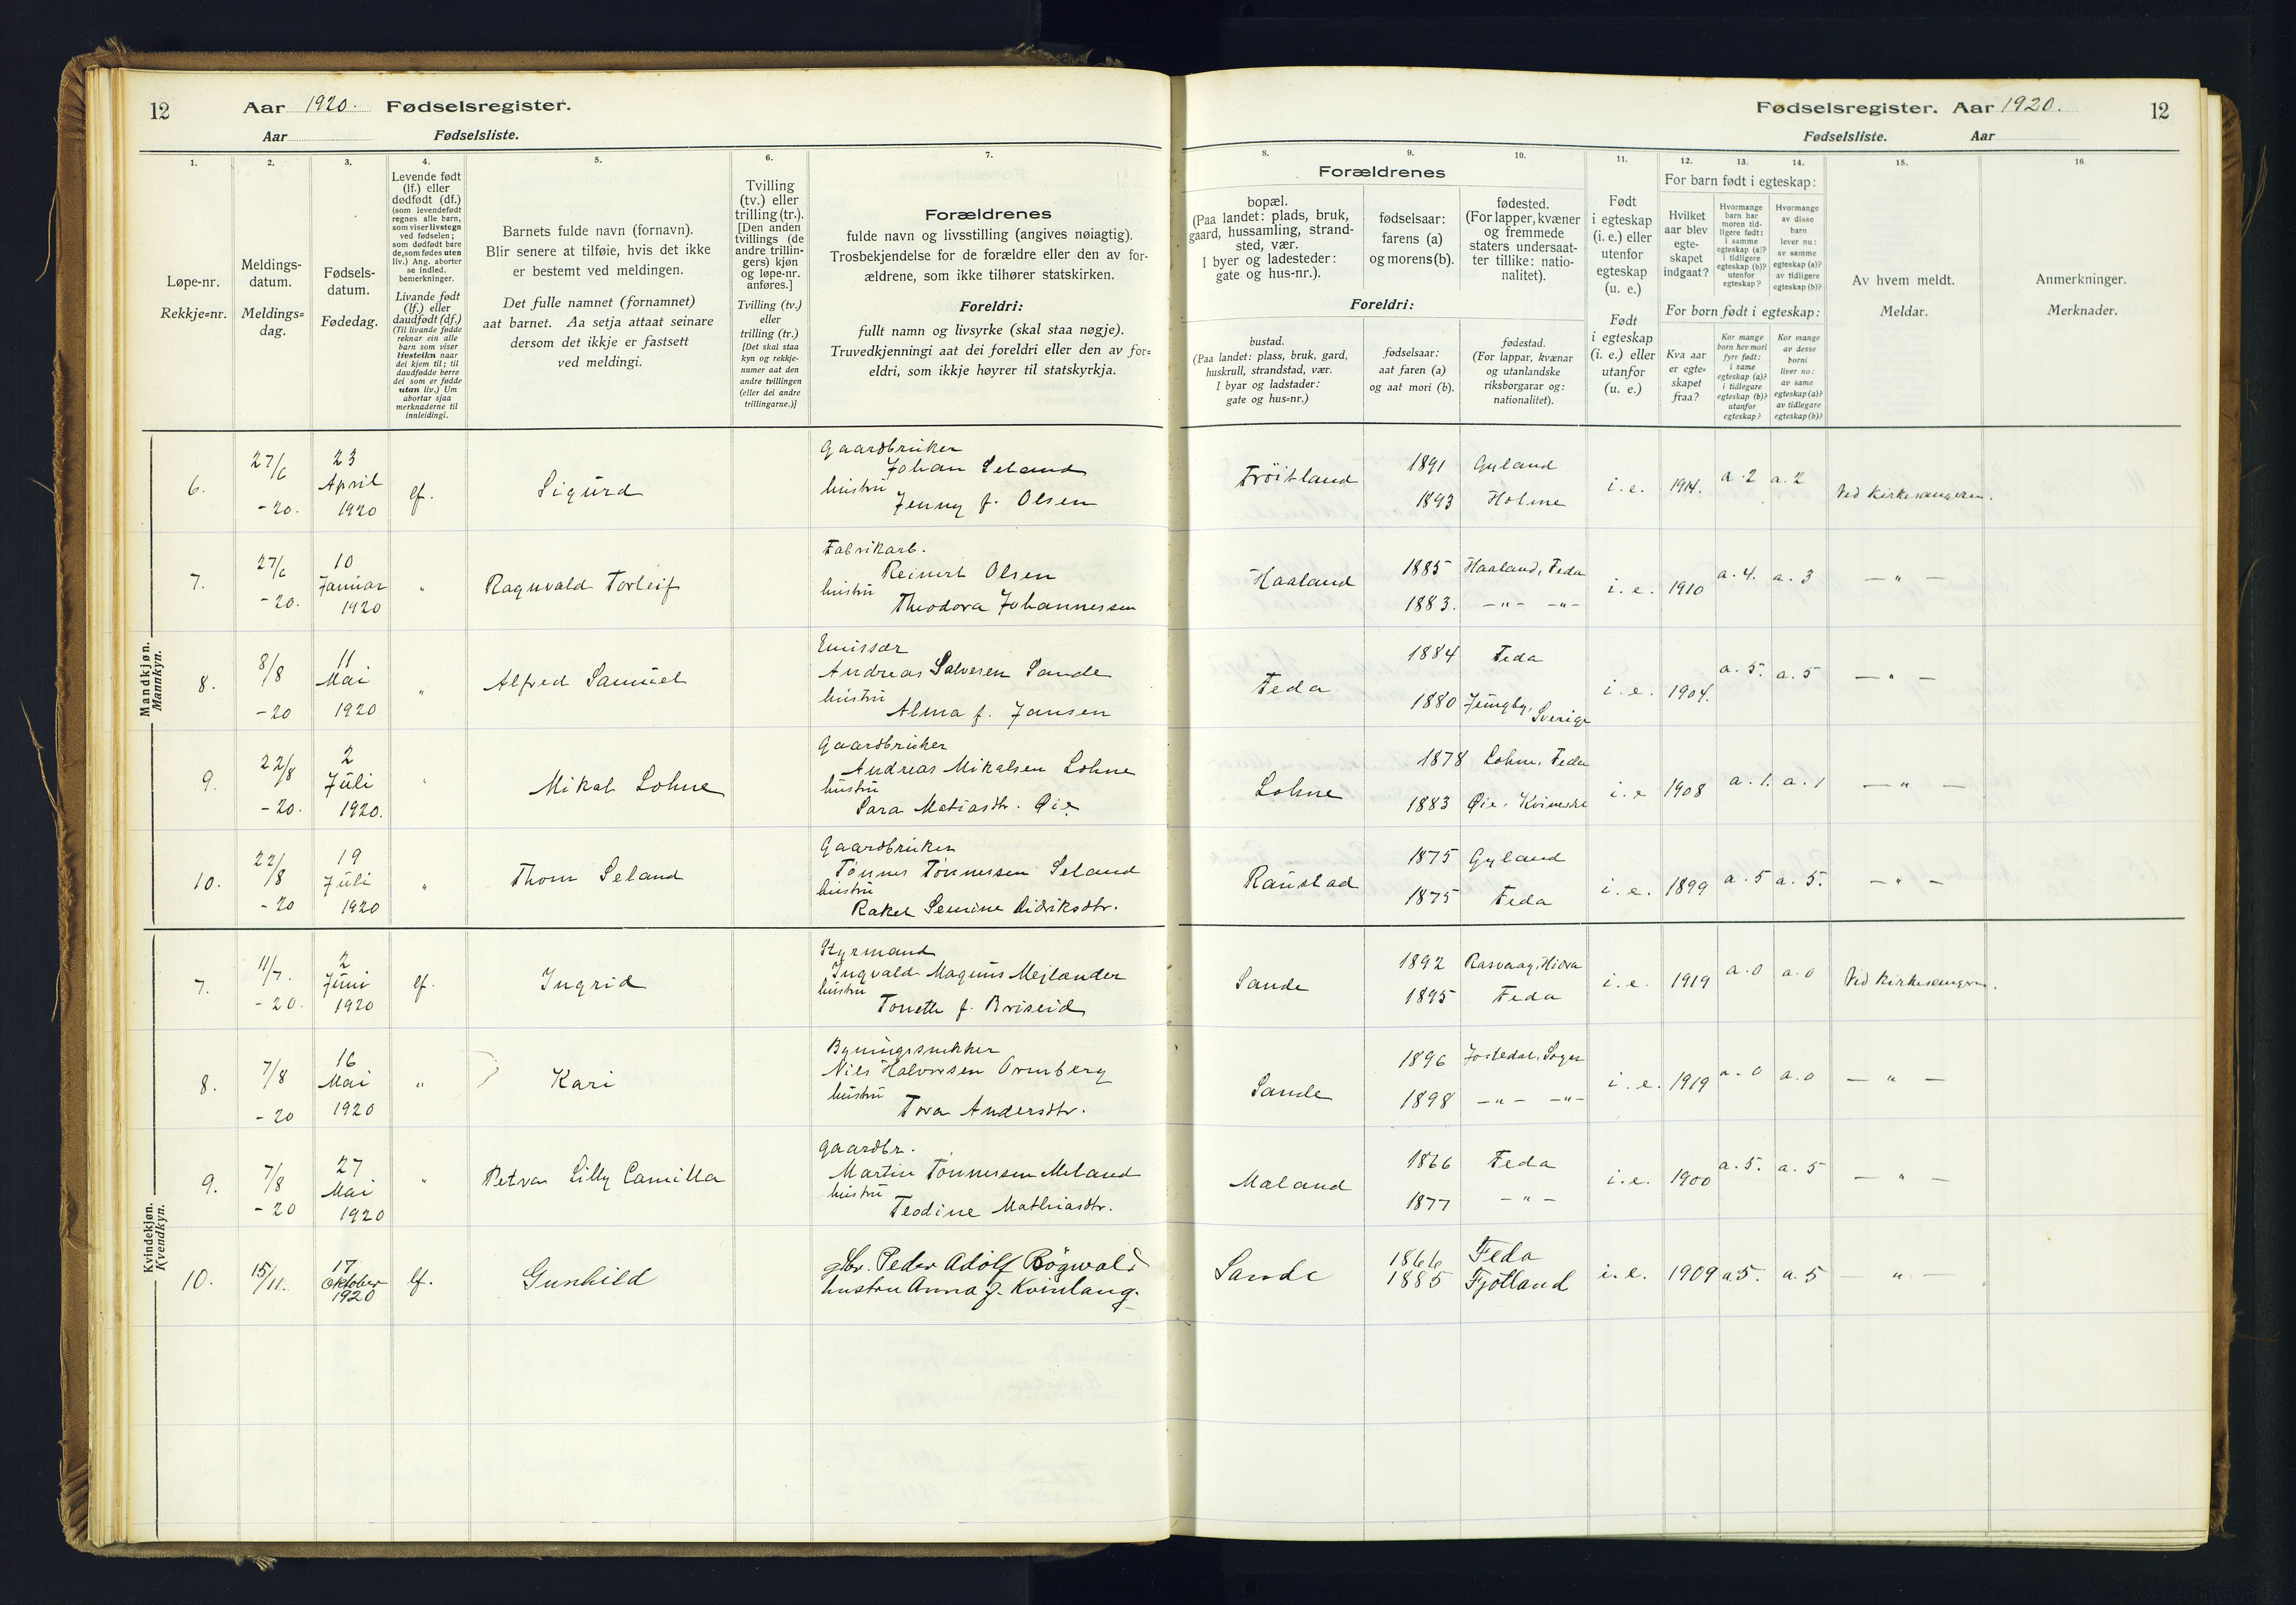 12 Aar 1920. Fødselsregister.
Aar Fødselsliste.
Fødselsregister. Aar 1920. 12
Fødselsliste. Aar
1. 2. 3. 4. 5. 6. 7.
Løpe-nr.
Rekkje=nr.
Meldings-
datum.
Meldings=
dag.
Fødsels-
datum.
Fødedag.
Levende født
(lf.) eller
dødfødt (df.)
(som levendefødt
regnes alle barn,
som viser livstegn
ved fødselen;
som dødfødt bare
de, som fødes uten
liv.) Ang. aborter
se indled.
bemerkninger.
Livande født
(lf.) eller
daudfødt (df.)
(Til livande fødde
reknar ein alle
barn som viser
livsteikn naar
dei kjem til; til
daudfødde berre
dei som er fødde
utan liv.) Um
abortar sjaa
merknaderne til
innleidingi.
Barnets fulde navn (fornavn).
Blir senere at tilføie, hvis det ikke
er bestemt ved meldingen.
Det fulle namnet (fornamnet)
aat barnet. Aa setja attaat seinare
dersom det ikkje er fastsett
ved meldingi.
Tvilling
(tv.) eller
trilling (tr.).
[Den anden
tvillings (de
andre trillin-
gers) kjøn
og løpe-nr.
anføres.]
Tvilling (tv.)
eller
trilling (tr.)
[Det skal staa
kyn og rekkje-
numer aat den
andre tvillingen
(eller dei andre
trillingarne.)]
Forældrenes
fulde navn og livsstilling (angives nøiagtig).
Trosbekjendelse for de forældre eller den av for-
ældrene, som ikke tilhører statskirken.
Foreldri:
fullt namn og livsyrke (skal staa nøgje).
Truvedkjenningi aat dei foreldri eller den av for=
eldri, som ikkje høyrer til statskyrkja.
8. 9. 10. 11. 12. 13. 14. 15. 16.
Forældrenes
bopæl.
(Paa landet: plads, bruk,
gaard, hussamling, strand-
sted, vær.
I byer og ladesteder:
gate og hus-nr.).
fødselsaar:
farens (a)
og morens (b).
fødested.
(For lapper, kvæner
og fremmede
staters undersaat-
ter tillike: natio-
nalitet).
Foreldri:
bustad.
(Paa landet: plass, bruk, gard,
huskrull, strandstad, vær.
I byar og ladstader:
gate og hus=nr.)
fødselsaar:
aat faren (a)
og aat mori (b).
fødestad.
(For lappar, kvænar
og utanlandske
riksborgarar og:
nationalitet).
Født
i egteskap
(i. e.) eller
utenfor
egteskap
(u. e.)
Født
i egteskap
(i. e.) eller
utanfor
egteskap
(u. e.)
For barn født i egteskap:
Hvilket
aar blev
egte-
skapet
indgaat?
Hvormange
barn har
moren tid-
ligere født:
i samme
egteskap (a)?
i tidligere
egteskap (b)?
utenfor
egteskap?
Hvormange
av disse
barn
lever nu:
av samme
egteskap (a)?
av tidligere
egteskap (b)?
For born født i egteskap:
Kva aar
er egte=
skapet
fraa?
Kor mange
born hev mori
fyrr født:
i same
egteskap (a)?
i tidlegare
egteskap (b)?
utanfor
egteskap?
Kor mange
av desse
borni
liver no:
av same
egteskap (a)?
av tidlegare
egteskap (b)?
Av hvem meldt.
Meldar.
Anmerkninger.
Merknader.
Mandkjøn.
Mannkyn.
6. 27/6 -20. 23 April 1920 lf. Sigurd
Gaardbruker
Johan Seland
hustru
Jenny f. Olsen
Frøitland 1891 Gyland
1893 Holme
i. e. 1914. a. 2 a. 2 Ved Kirkesangeren.
7. 27/6 -20. 10 Januar 1920 " Ragnvald Torleif
Fabrikarb.
Reinert Olsen
hustru
Theodora Johannessen
Haaland 1885 Haaland, Feda
1883. -"- -"-
i. e. 1910 a. 4. a. 3 - " -
8. 8/8 -20 11 Mai 1920 " Alfred Samuel
Emissær
Andreas Salvesen Sande
hustru
Alma f. Jansen
Feda 1884 Feda
1880 Sverige
i. e. 1904. a. 5. a. 5 - " -
9. 22/8 -20. 2 Juli 1920. " Mikal Lohne
Gaardbruker
Andreas Mikalsen Lohne
hustru
Sara Matiasdtr. Øie
Lohne 1878 Lohne, Feda
1883 Øie,
i. e 1908 a. 1. a. 1 - " -
10. 22/8 -20 19 Juli 1920 " Thom Seland
Gaardbruker
Tønnes Tønnesen Seland
hustru
Rakel Semine Didriksdtr.
Raustad 1875 Gyland
1875 Feda
i. e. 1899 a. 5 a. 5. - " -
Kvindekjøn.
Kvendkyn.
7. 11/7. -20. 2 Juni 1920 lf. Ingrid
Styrmand
Ingvald Magnus Mejlænder
hustru
Tonette f. Briseid
Sande 1892 Rasvaag, Hidra
1895 Feda
i. e. 1919 a. 0 a. 0 Ved Kirkesangeren.
8. 7/8 -20 16 Mai 1920 " Kari
Bygningssnekker
Nils Halvorsen Ormberg
hustru
Tora Andersdtr.
Sande 1896 Jostedal, Sogn
1898 -"- -"-
i. e. 1919 a. 0 a. 0 - " -
9. 7/8 -20 27 Mai 1920 " Petra Lilly Camilla
Gaardbr.
Martin Tønnessen Meland
hustru
Teodine Mathiasdtr.
Meland 1866 Feda
1877 - " -
i. e. 1900 a. 5. a. 5 - " -
10. 15/11. 17 Oktober 1920 lf. Gunhild
gbr. Peder Adolf Røgnvold
hustru Anna f. Kvinlaug.
Sande 1866 Feda
1885 Fjotland
i. e. 1909 a 5. a. 5 - " -